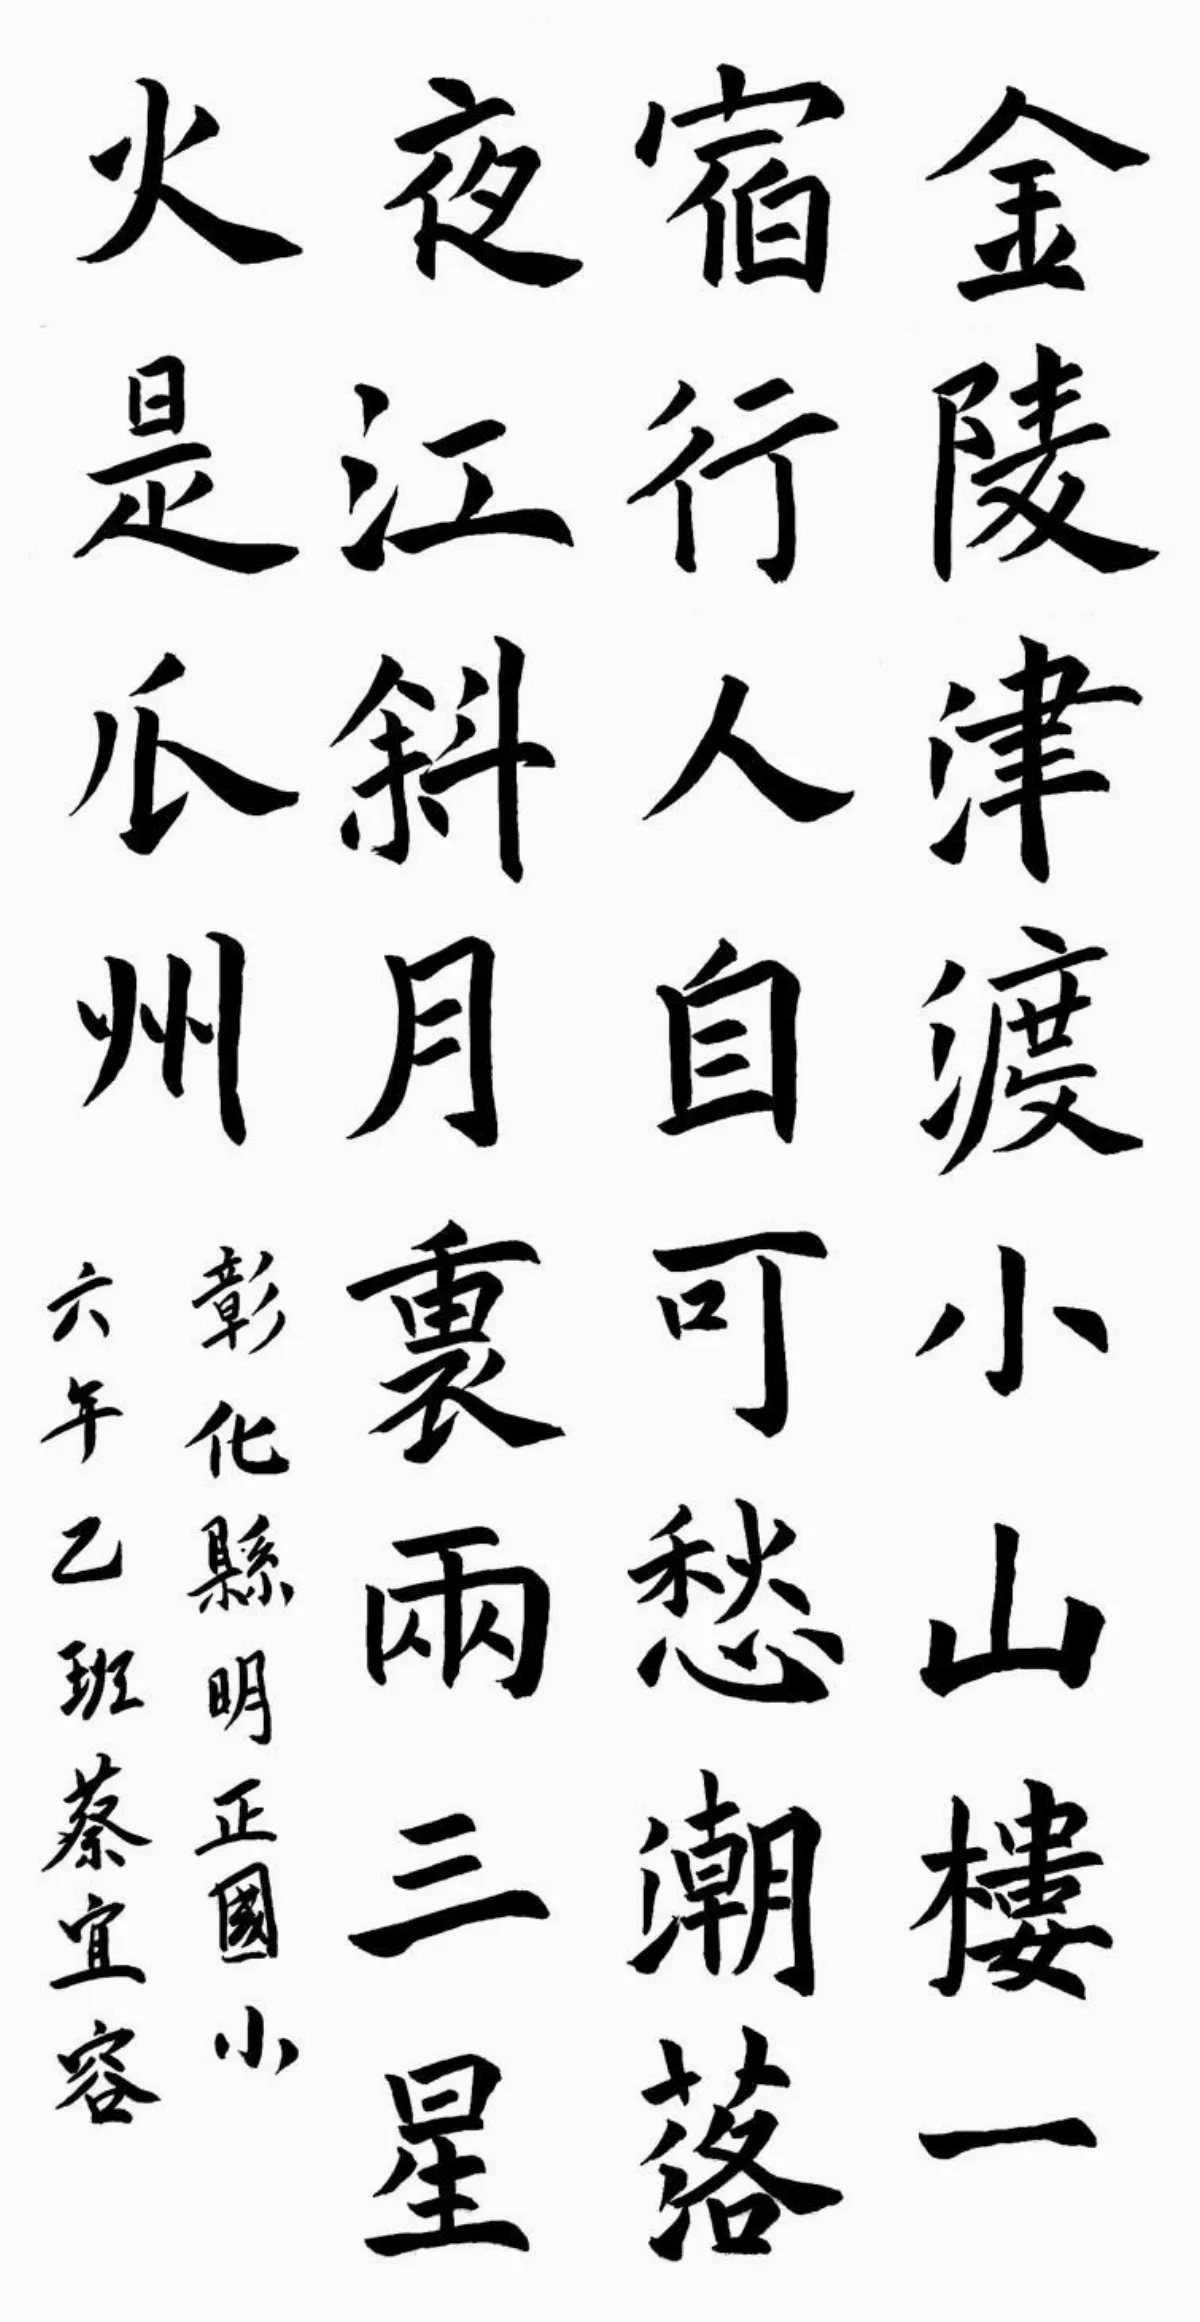 金陵津渡小山樓一
宿行人自可愁潮落
夜江斜月裏兩三星
火是瓜州
彰化縣明正國小
六年乙班蔡宜容